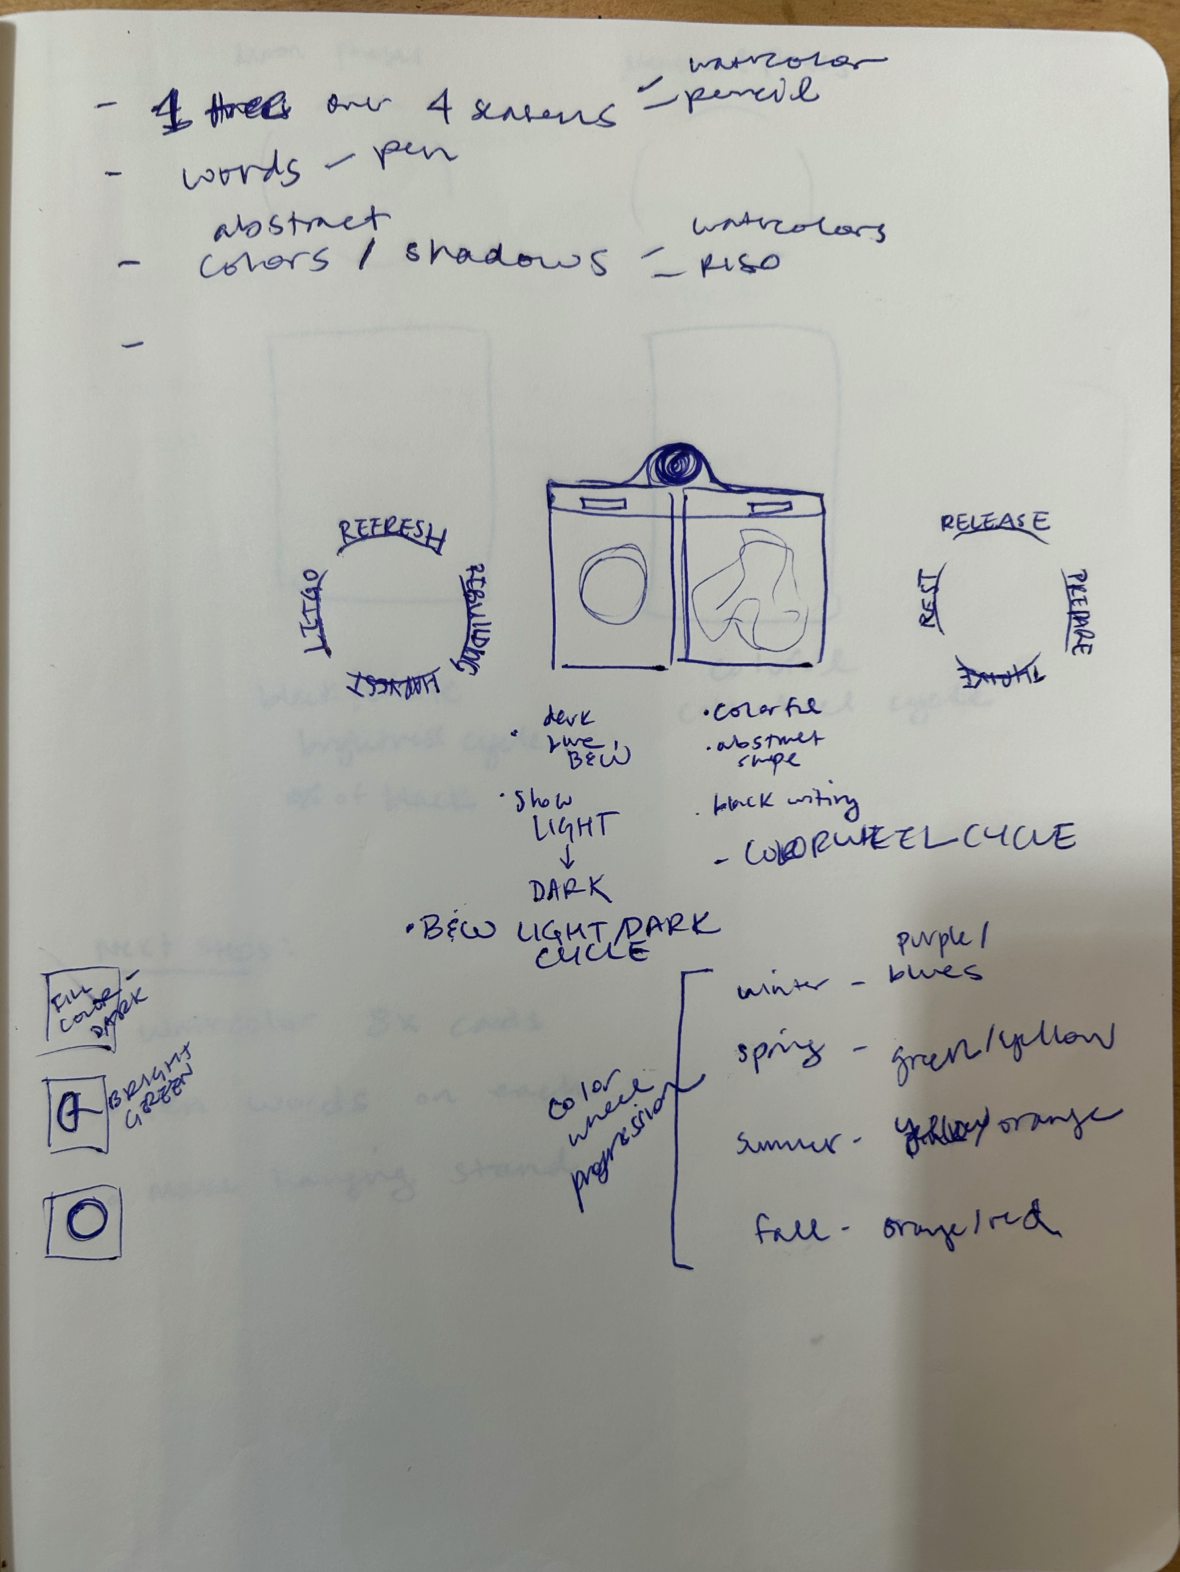 - 1 tree over 4 seasons - watrcolor
- pencil
- words - pen
abstract
- colors / shadows - watrcolors
- RISO
-
REFRESH
REBUILDING
HARVEST
LET GO
RELEASE
PREPARE
THRIVE
REST
• dark
B&W
• show
LIGHT
↓
DARK
• B&W LIGHT/DARK
CYCLE
• colorful
• abstract
shape
• black writing
- COLORWHEEL CYCLE
FILL
COLOR -
DARK
BRIGHT
GREEN
color
wheel
progression
winter - purple/
blues
spring - green/yellow
summer - yellow/orange
fall - orange/red
Next steps:
watercolor 8x cards
words on each
make hanging stand